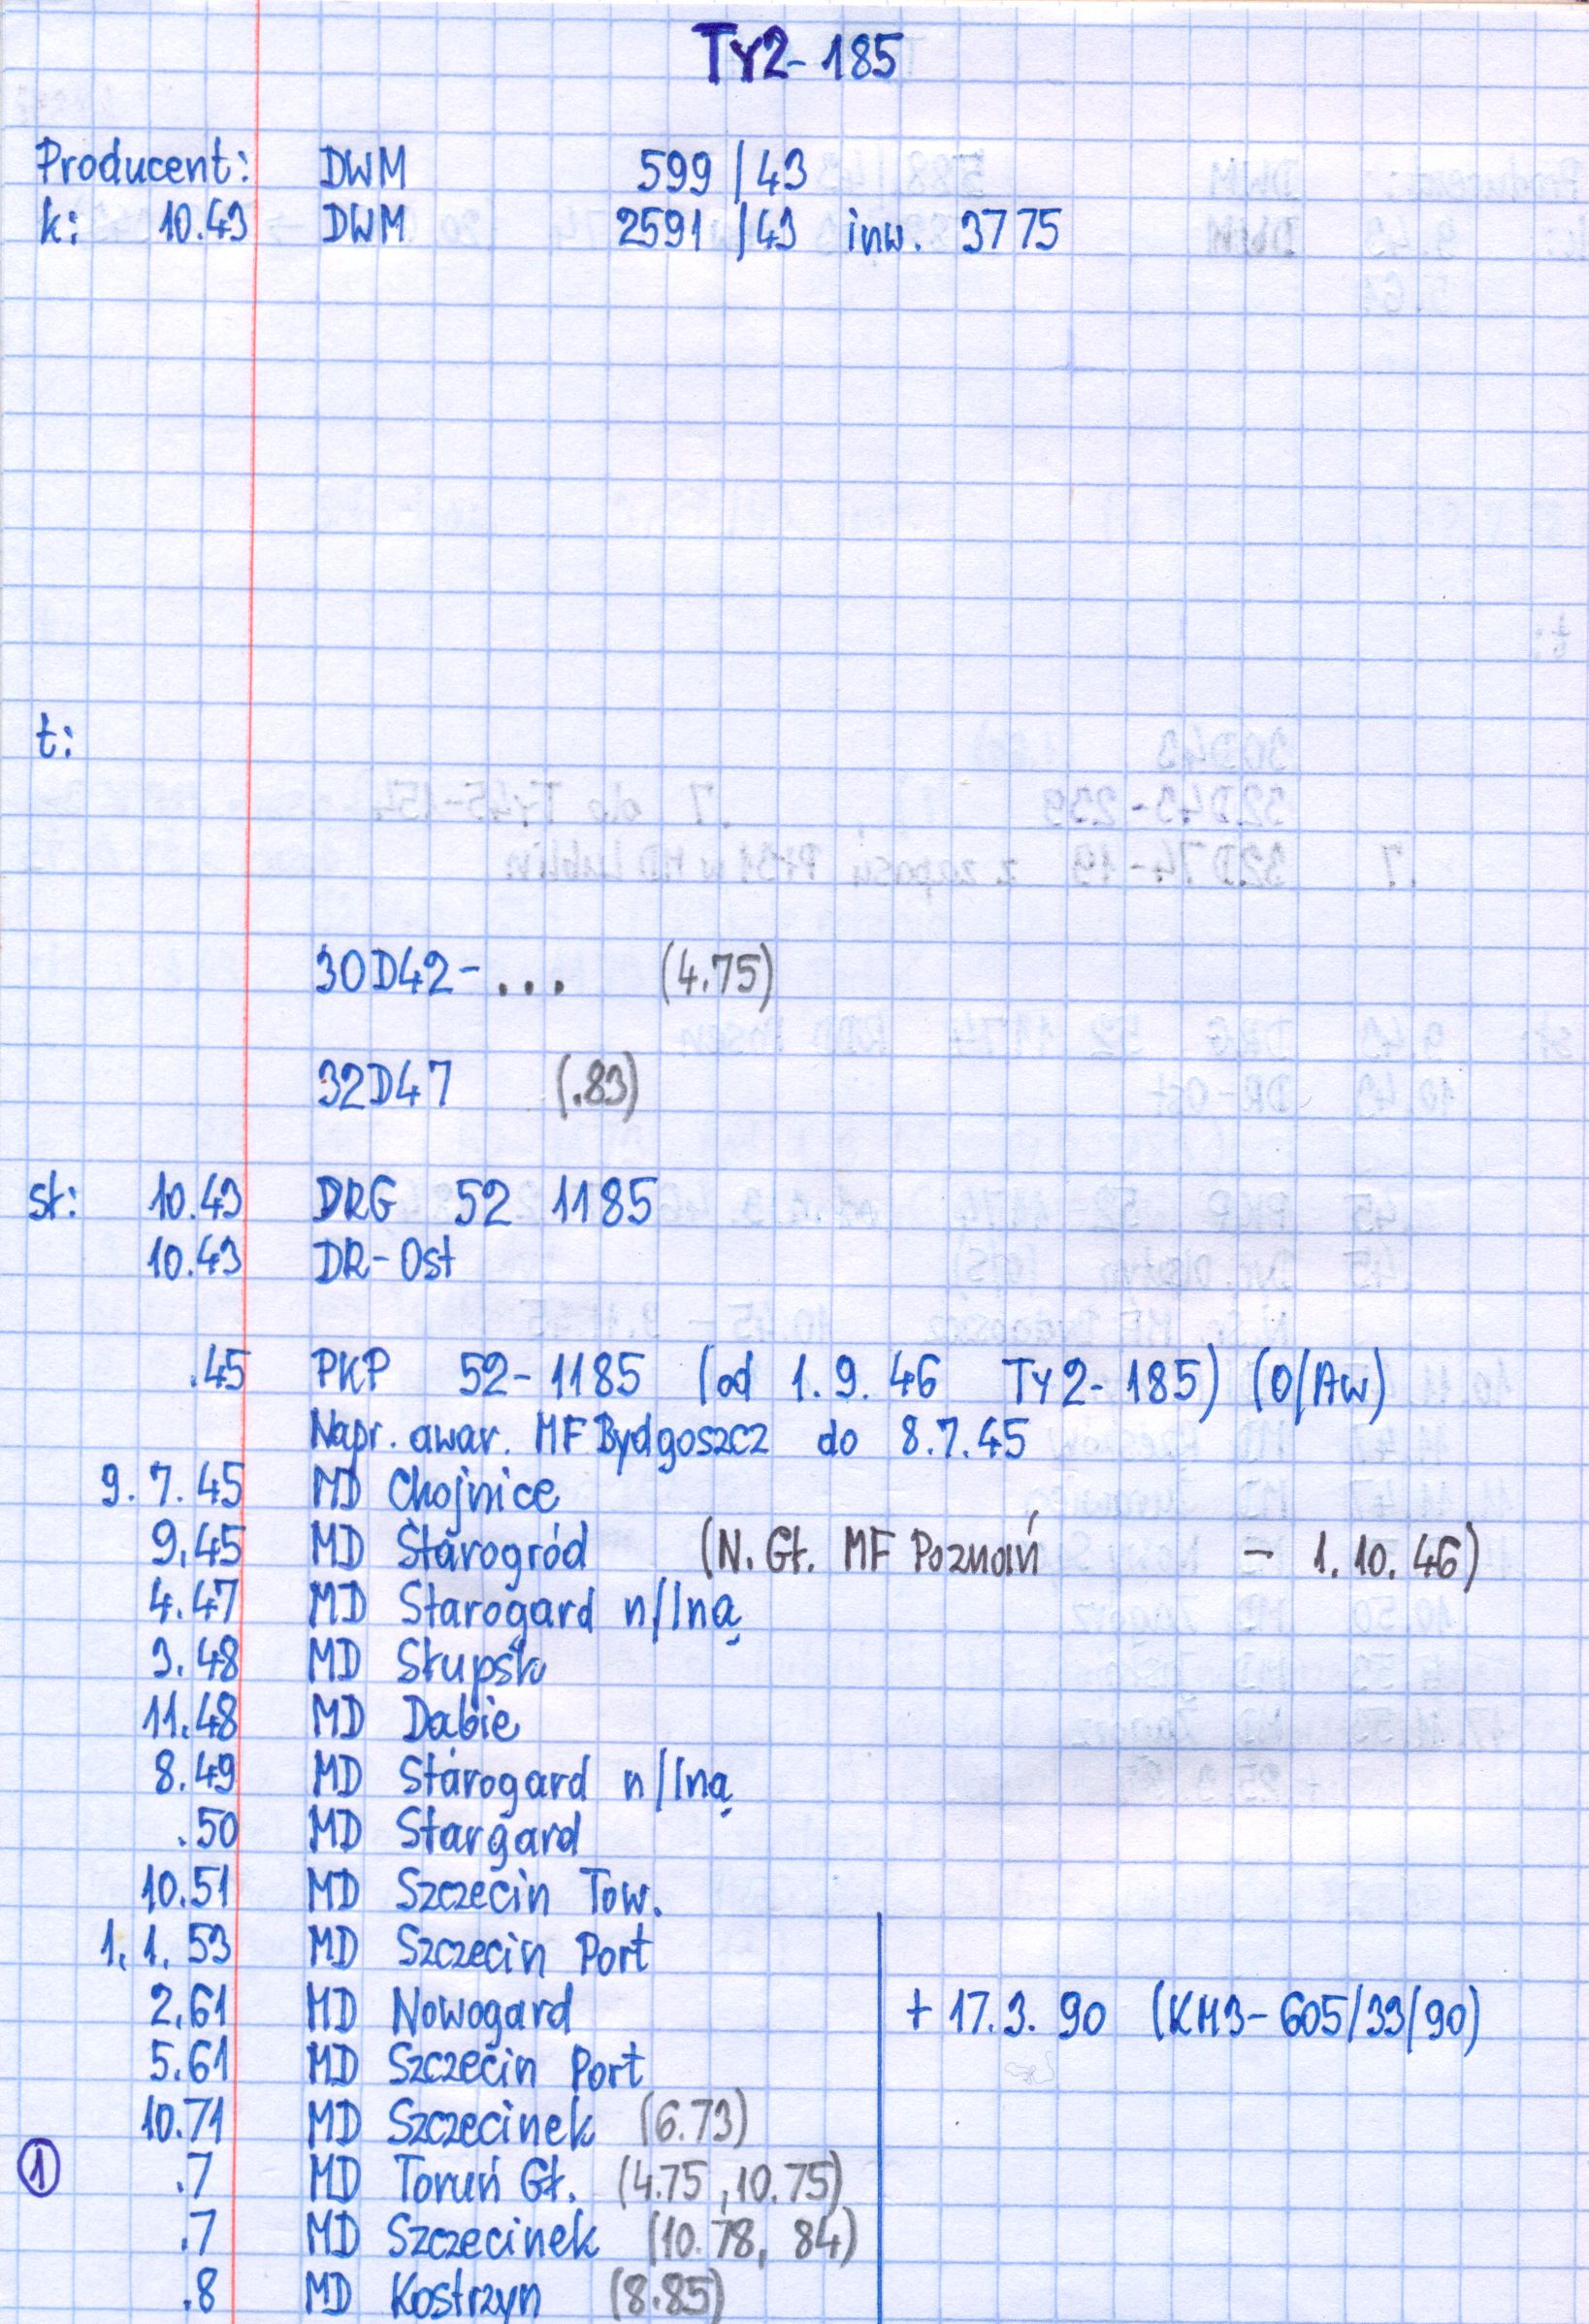 Ty2-185
Producent: DWM 599/43
k: 10.43 DWM 2591/43 inw. 3775
t:
30D42-... (4.75)
32D47 (.83)
st: 10.43 DRG 52 1185
10.43 DR-Ost
.45 PKP 52-1185 (od 1.9.46 Ty2-185) (O/Aw)
Napr. awar. MF Bydgoszcz do 8.7.45
9.7.45 MD Chojnice
9.45 MD Starogród (N. Gł. MF Poznań - 1.10.46)
4.47 MD Starogard n/Iną
3.48 MD Słupsk
11.48 MD Dabie
8.49 MD Starogard n/Iną
.50 MD Stargard
10.51 MD Szczecin Tow.
1.1.53 MD Szczecin Port
2.61 MD Nowogard
+ 17.3.90 (KM3-605/33/90)
5.61 MD Szczecin Port
10.71 MD Szczecinek (6.73)
① .7 MD Toruń Gł. (4.75, 10.75)
.7 MD Szczecinek (10.78, 84)
.8 MD Kostrzyn (8.85)